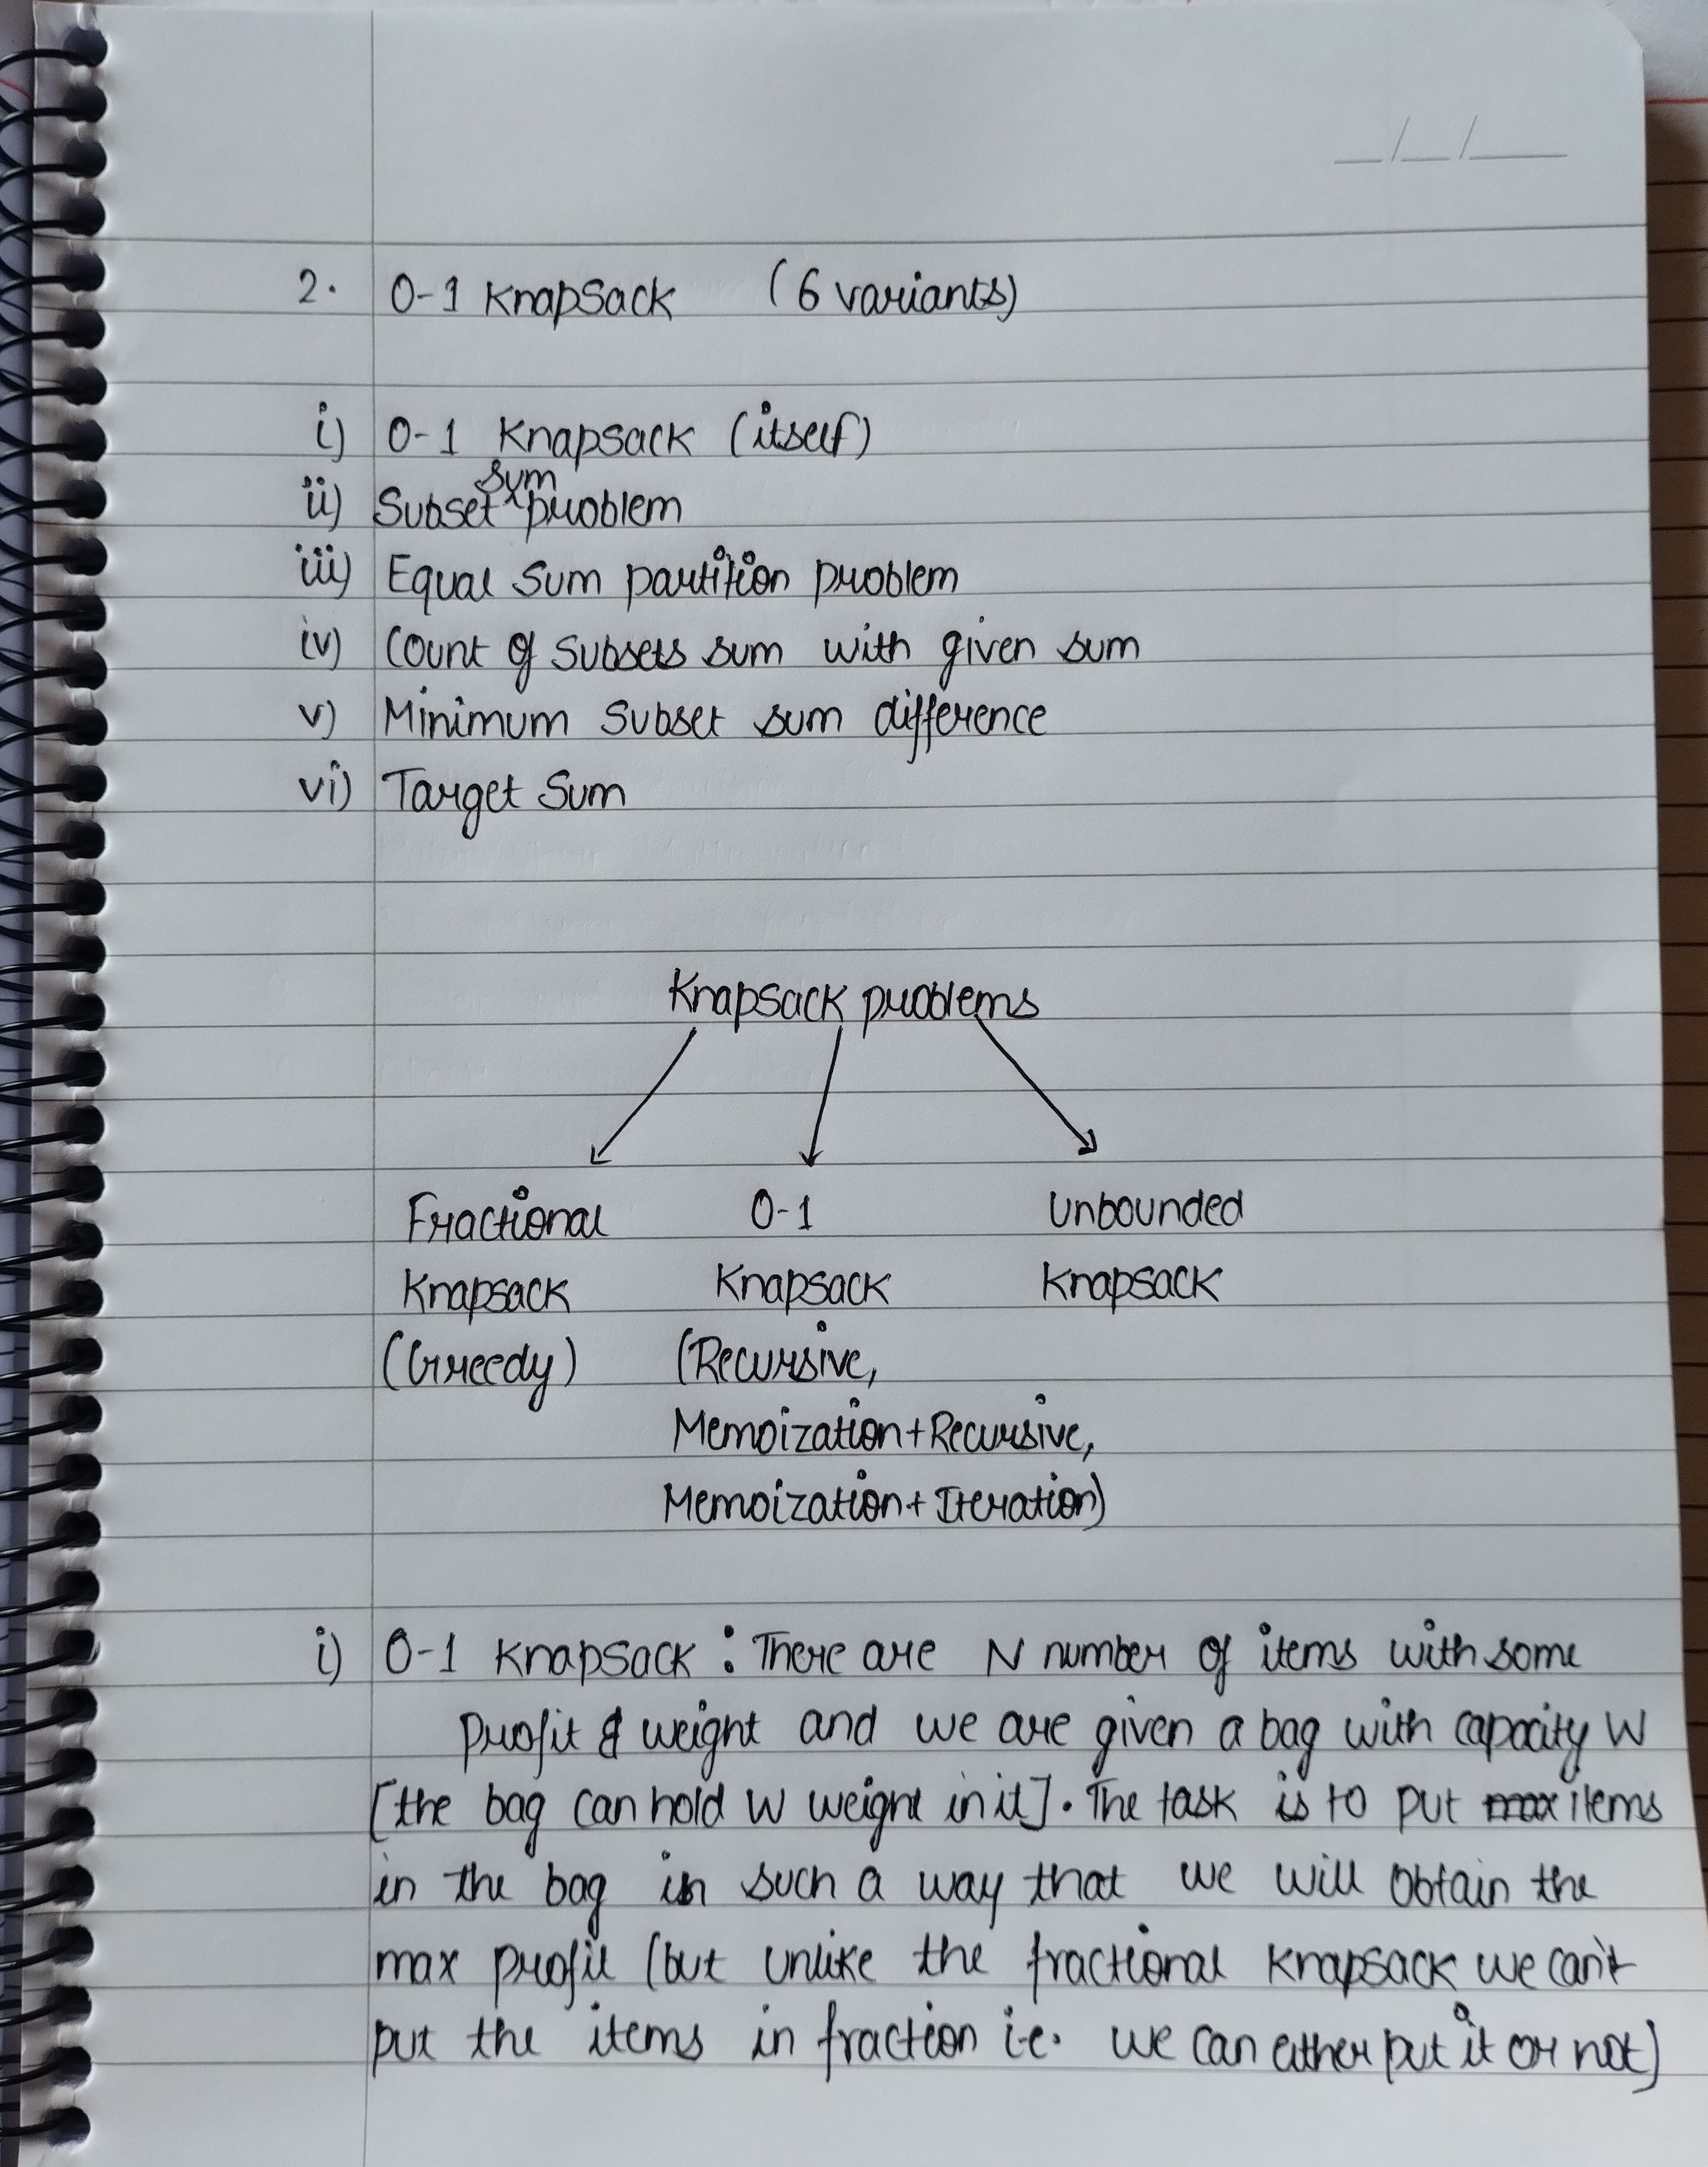 __/__/____
2. 0-1 Knapsack (6 variants)
i) 0-1 Knapsack (itself)
ii) Subset sum problem
iii) Equal Sum partition problem
iv) Count of Subsets sum with given sum
v) Minimum Subset sum difference
vi) Target Sum
Knapsack problems
Fractional 0-1 Unbounded
Knapsack Knapsack Knapsack
(Greedy) (Recursive,
Memoization+Recursive,
Memoization+Iteration)
i) 0-1 Knapsack : There are N number of items with some
profit & weight and we are given a bag with capacity W
[the bag can hold W weight in it]. The task is to put max items
in the bag in such a way that we will obtain the
max profit (but unlike the fractional Knapsack we can't
put the items in fraction i.e. we can either put it or not)